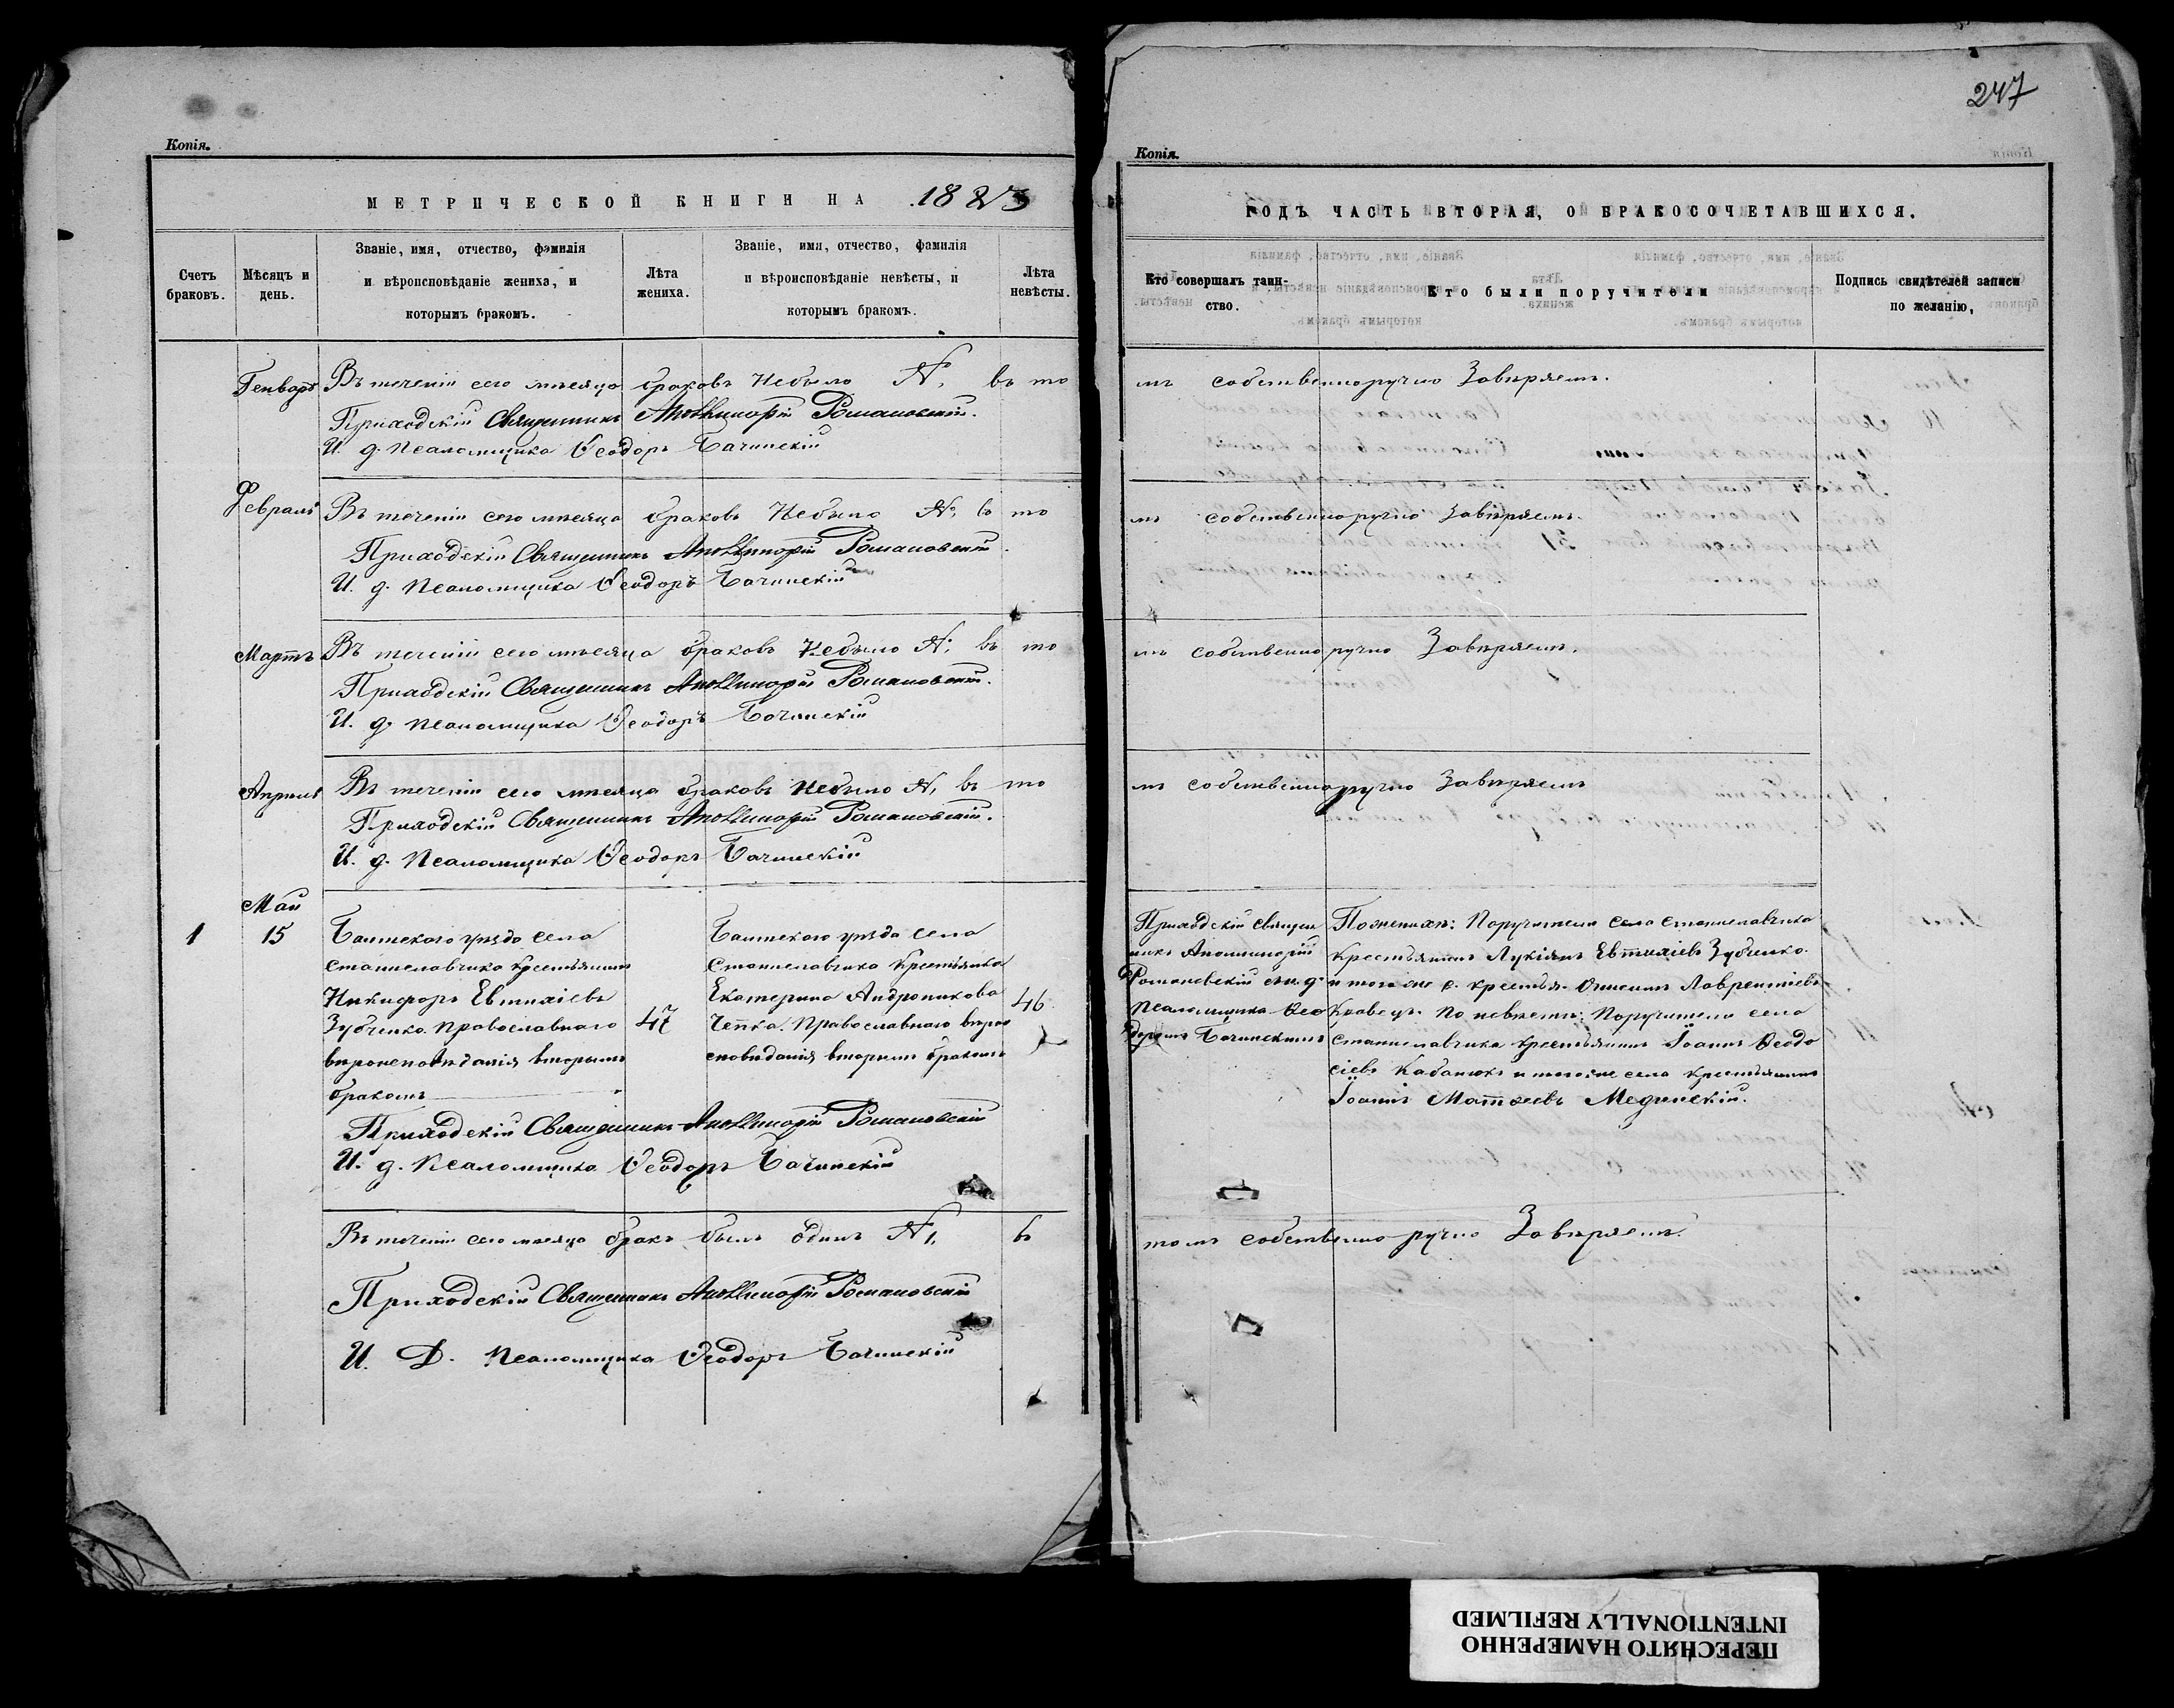 247
Копія.
МЕТРИЧЕСКОЙ КНИГИ НА 1883
Счетъ браковъ.
Мѣсяцъ и день.
Званіе, имя, отчество, фамилія и вѣроисповѣданіе жениха, и которымъ бракомъ.
Лѣта жениха.
Званіе, имя, отчество, фамилія и вѣроисповѣданіе невѣсты, и которымъ бракомъ.
Лѣта невѣсты.
Генварь
Въ теченіи сего мѣсяца браковъ Небыло №, въ то
Приходскій Священникъ Аполлинарій Романовскій.
И. д. Псаломщика Ѳеодоръ Бачинскій
Февраль
Въ теченіи сего мѣсяца браковъ Небыло №, въ то
Приходскій Священникъ Аполлинарій Романовскій.
И. д. Псаломщика Ѳеодоръ Бачинскій
Мартъ
Въ теченіи сего мѣсяца браковъ Небыло №, въ то
Приходскій Священникъ Аполлинарій Романовскій.
И. д. Псаломщика Ѳеодоръ Бачинскій
Апрѣль
Въ теченіи сего мѣсяца браковъ Небыло №, въ то
Приходскій Священникъ Аполлинарій Романовскій.
И. д. Псаломщика Ѳеодоръ Бачинскій
Май
1
15
Балтскаго уѣзда села
Станиславчика крестьянинъ
Никифоръ Евтихіевъ
Зубченко. Православнаго
вѣроисповѣданія вторымъ
бракомъ
47
Балтскаго уѣзда села
Станиславчика Крестьянка
Екатерина Андроникова
Чепка. Православнаго вѣрои
сповѣданія вторымъ бракомъ
46
Приходскій Священникъ Аполлинарій Романовскій
И. д. Псаломщика Ѳеодоръ Бачинскій
Въ теченіи сего мѣсяца бракъ былъ одинъ №1, въ
Приходскій Священникъ Аполлинарій Романовскій
И. Д. Псаломщика Ѳеодоръ Бачинскій
Копія.
ГОДЪ ЧАСТЬ ВТОРАЯ, О БРАКОСОЧЕТАВШИХСЯ.
Кто совершалъ таинство.
Кто были поручители
Подпись свидѣтелей записи по желанію,
мъ собственноручно Завѣряемъ.
мъ собственноручно Завѣряемъ.
мъ собственно ручно Завѣряемъ.
мъ собственноручно Завѣряемъ
Приходскій священ
никъ Аполлинарій
Романовскій съ и. д.
Псаломщика Ѳео
доромъ Бачинскимъ
По женихѣ: Поручители села Станиславчика
Крестьянинъ Лукіянъ Евтихіевъ Зубченко
и того же с. крестья. Онисимъ Лаврентіевъ
Кравецъ. По невѣстѣ: Поручители села
Станиславчика крестьянинъ Іоаннъ Ѳеодо
сіевъ Кабанюкъ и того же села крестьянинъ
Іоаннъ Матѳеевъ Мединскій.
томъ собственно ручно Завѣряемъ.
ПЕРЕСНЯТО НАМЕРЕННО
INTENTIONALLY REFILMED